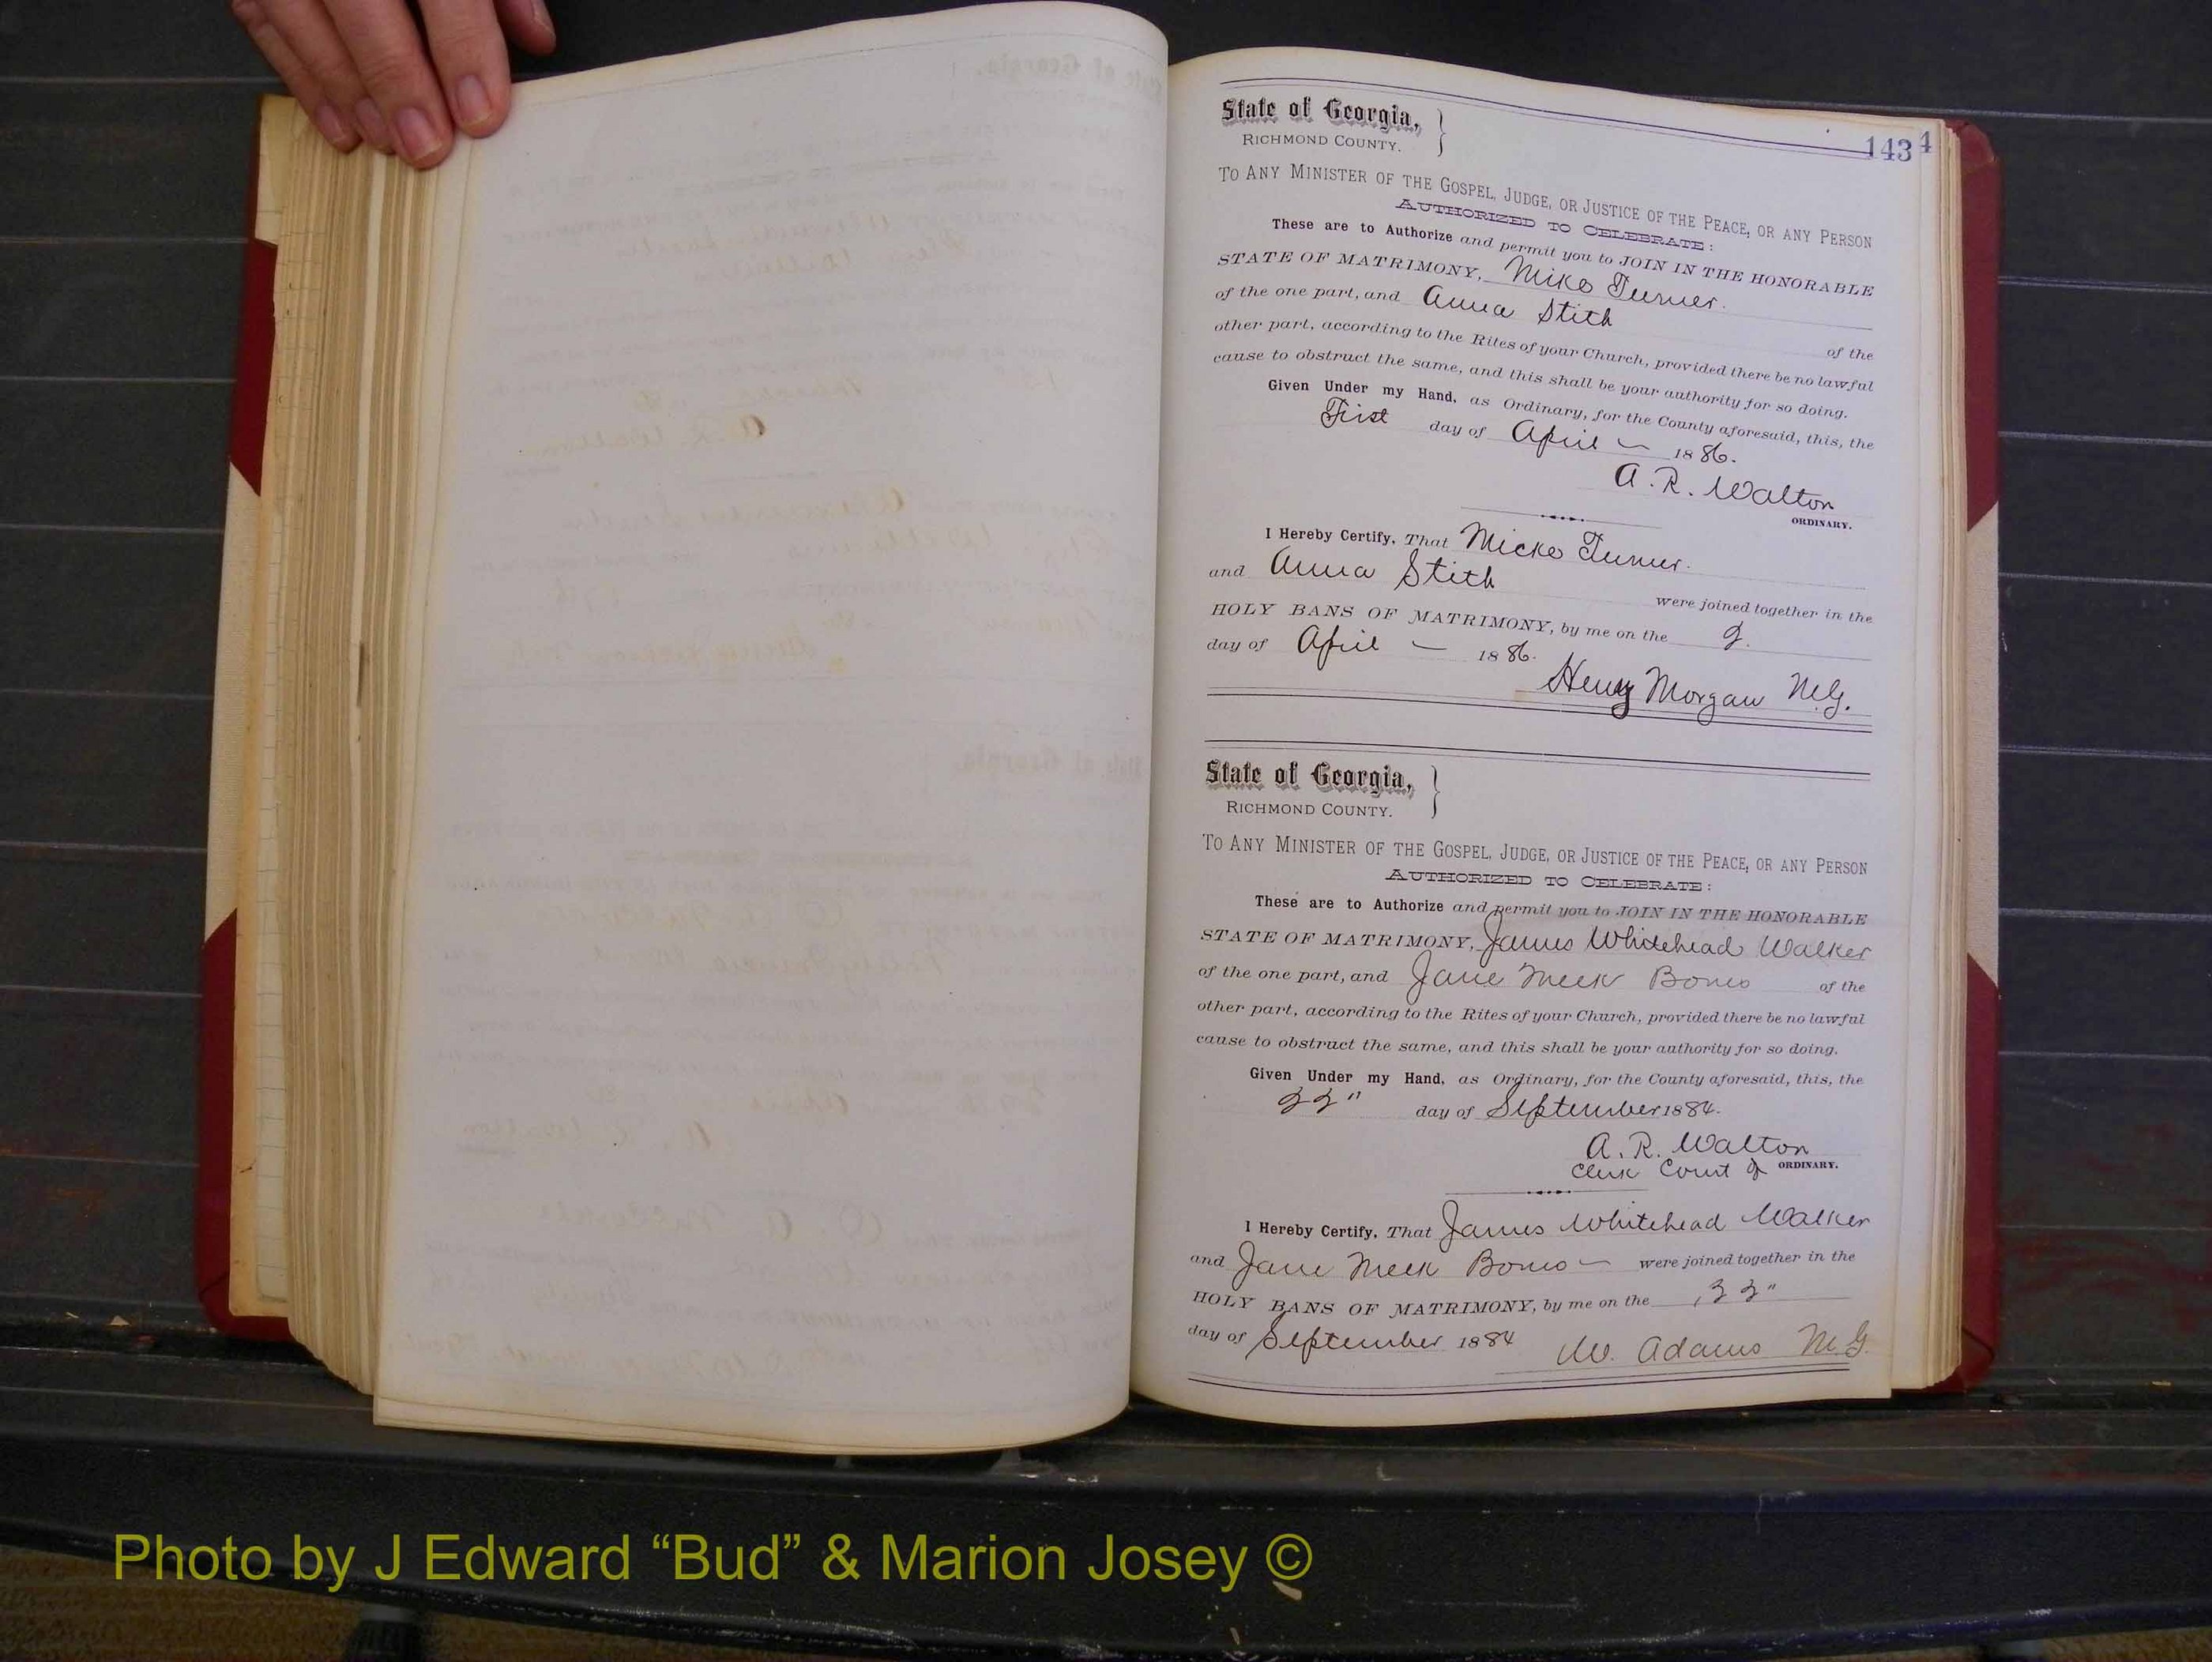 143 4
State of Georgia,
RICHMOND COUNTY.
TO ANY MINISTER OF THE GOSPEL, JUDGE, OR JUSTICE OF THE PEACE, OR ANY PERSON
AUTHORIZED TO CELEBRATE:
These are to Authorize and permit you to JOIN IN THE HONORABLE
STATE OF MATRIMONY, Mike Turner.
of the one part, and Anna Stith
of the
other part, according to the Rites of your Church, provided there be no lawful
cause to obstruct the same, and this shall be your authority for so doing.
Given Under my Hand, as Ordinary, for the County aforesaid, this, the
First day of April 1886.
A. R. Walton
ORDINARY.
I Hereby Certify, That Micke Turner.
and Anna Stith
were joined together in the
HOLY BANS OF MATRIMONY, by me on the 2.
day of April 1886.
Henry Morgan M.G.
State of Georgia,
RICHMOND COUNTY.
TO ANY MINISTER OF THE GOSPEL, JUDGE, OR JUSTICE OF THE PEACE, OR ANY PERSON
AUTHORIZED TO CELEBRATE:
These are to Authorize and permit you to JOIN IN THE HONORABLE
STATE OF MATRIMONY, James Whitehead Walker
of the one part, and Jane Meek Bones of the
other part, according to the Rites of your Church, provided there be no lawful
cause to obstruct the same, and this shall be your authority for so doing.
Given Under my Hand, as Ordinary, for the County aforesaid, this, the
day of September 1884.
A. R. Walton
Clerk Court of ORDINARY.
I Hereby Certify, That James Whitehead Walker
and Jane Meek Bones were joined together in the
HOLY BANS OF MATRIMONY, by me on the
day of September 1884 W. Adams M.G.
Photo by J Edward “Bud” & Marion Josey ©